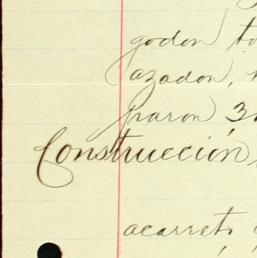 godon to
azadon,
paron 3
Construccion,
acarreto